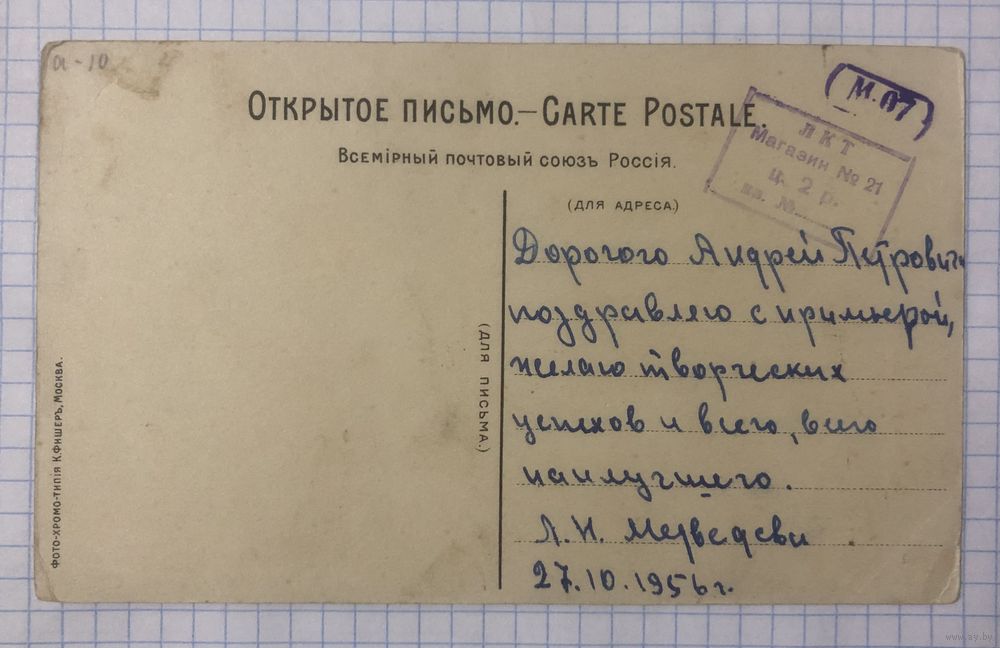 а-10
ОТКРЫТОЕ ПИСЬМО.—CARTE POSTALE.
ВСЕМІРНЫЙ ПОЧТОВЫЙ СОЮЗЪ РОССІЯ.
ЛКТ
Магазин № 21
ц. 2 р.
(ДЛЯ АДРЕСА.)
(ДЛЯ ПИСЬМА.)
ФОТО-ХРОМО-ТИПІЯ К.ФИШЕРЪ, МОСКВА.
Дорогого Андрей Петровича
поздравляю с примьерой,
желаю творческих
успехов и всего, всего
наилучшего.
Л.Н. Медведева
27.10.1956 г.
www.ay.by